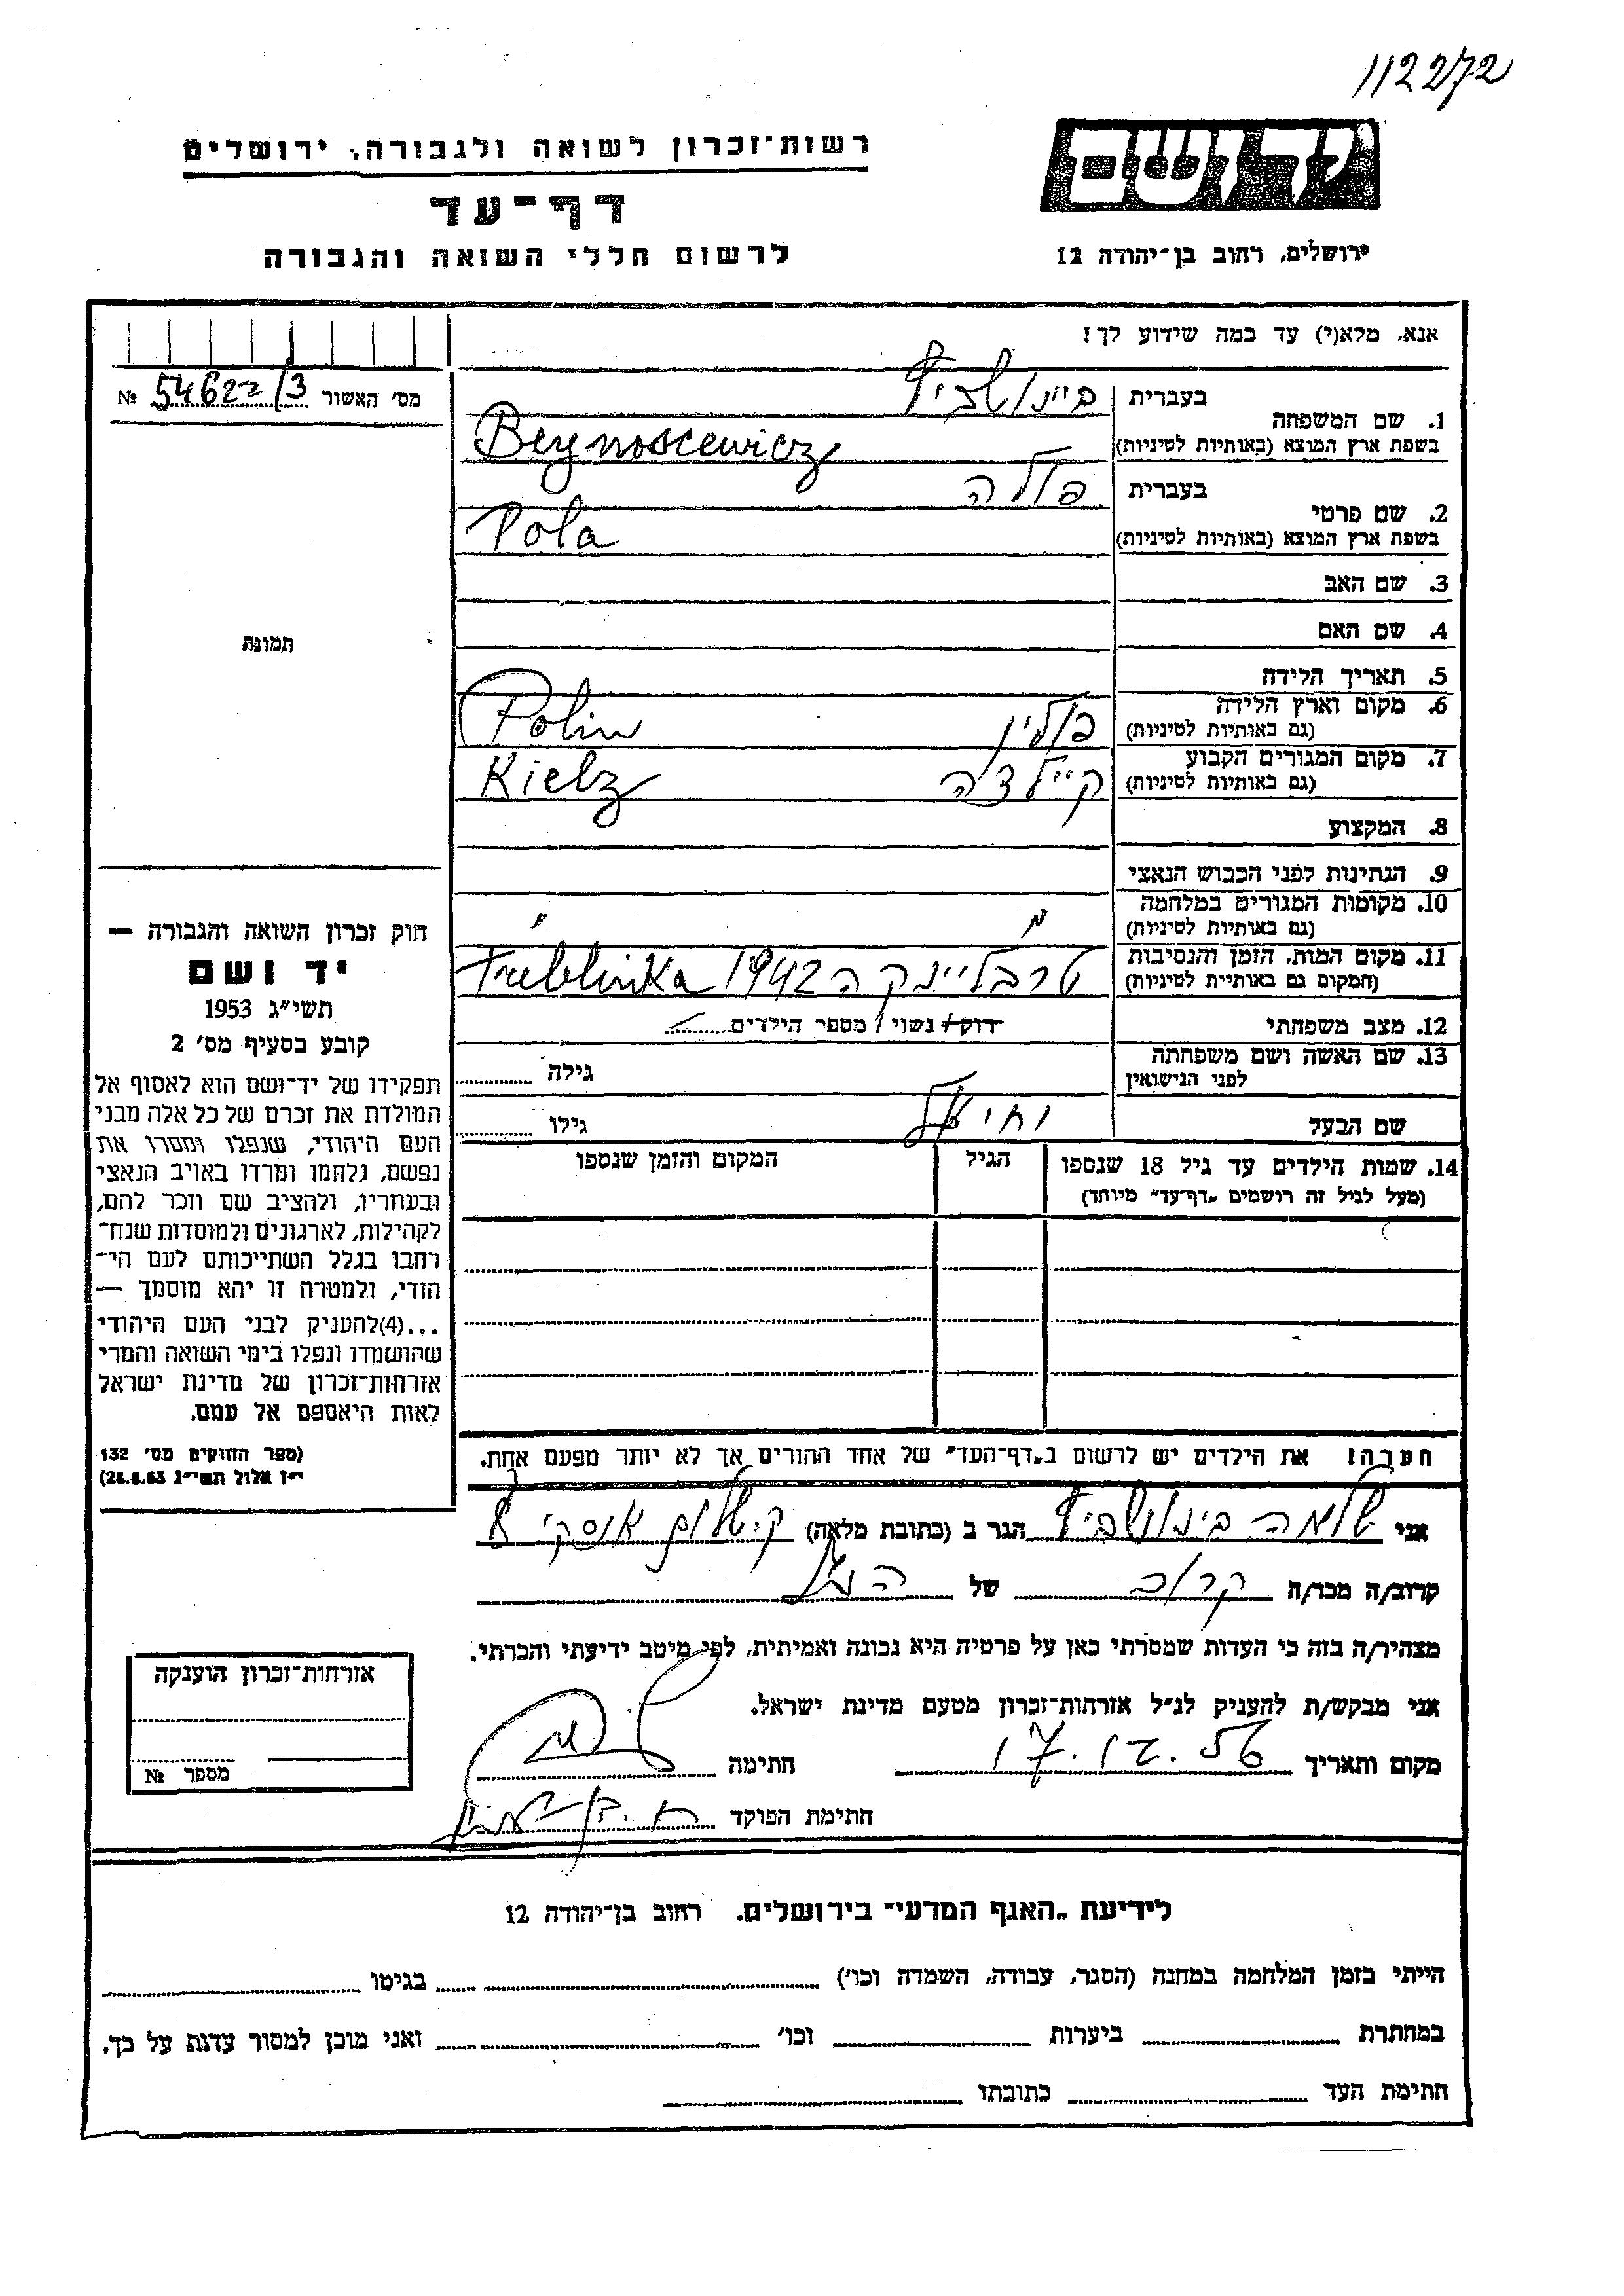 112272
רשות־זכרון לשואה ולגבורה, ירושלים
דף־עד
לרשום חללי השואה והגבורה
יד ושם
ירושלים, רחוב בן־יהודה 12
אנא, מלא(י) עד כמה שידוע לך!
מס׳ האשור 54622/3 №
תמונה
1. שם המשפחה
בעברית
בשפת ארץ המוצא (באותיות לטיניות) Beynoscewicz
2. שם פרטי
בעברית פולה
בשפת ארץ המוצא (באותיות לטיניות) Pola
3. שם האב
4. שם האם
5. תאריך הלידה
6. מקום וארץ הלידה
(גם באותיות לטיניות) פולין Polin
7. מקום המגורים הקבוע
(גם באותיות לטיניות) קיילצה Kielz
8. המקצוע
9. הנתינות לפני הכבוש הנאצי
10. מקומות המגורים במלחמה
(גם באותיות לטיניות) " "
11. מקום המות, הזמן והנסיבות
(המקום גם באותיית לטיניות) טרבליינקה 1942 Treblinka
12. מצב משפחתי רוק/ נשוי/ מספר הילדים
13. שם האשה ושם משפחתה
לפני הנישואין גילה
שם הבעל יחיאל גילו
14. שמות הילדים עד גיל 18 שנספו הגיל המקום והזמן שנספו
(מעל לגיל זה רושמים „דף־עד״ מיוחד)
הערה! את הילדים יש לרשום ב„דף־העד״ של אחד ההורים אך לא יותר מפעם אחת.
חוק זכרון השואה והגבורה —
יד ושם
תשי״ג 1953
קובע בסעיף מס׳ 2
תפקידו של יד־ושם הוא לאסוף אל
המולדת את זכרם של כל אלה מבני
העם היהודי, שנפלו ומסרו את
נפשם, נלחמו ומרדו באויב הנאצי
ובעוזריו, ולהציב שם וזכר להם,
לקהילות, לארגונים ולמוסדות שנח־
רחבו בגלל השתייכותם לעם הי־
הודי, ולמטרה זו יהא מוסמך —
...(4) להעניק לבני העם היהודי
שהושמדו ונפלו בימי השואה והמרי
אזרחות־זכרון של מדינת ישראל
לאות היאספם אל עמם.
(ספר החוקים מס׳ 132
י״ז אלול תשי״ג 28.8.53)
אני שלמה הגר ב (כתובת מלאה)
קרוב/ה מכר/ה קרוב של
מצהיר/ה בזה כי העדות שמסרתי כאן על פרטיה היא נכונה ואמיתית, לפי מיטב ידיעתי והכרתי.
אני מבקש/ת להעניק לנ״ל אזרחות־זכרון מטעם מדינת ישראל.
מקום ותאריך 17.12.56 חתימה
חתימת הפוקד
אזרחות־זכרון הוענקה
מספר №
לידיעת „האגף המדעי״ בירושלים, רחוב בן־יהודה 12
הייתי בזמן המלחמה במחנה (הסגר, עבודה, השמדה וכו׳) בגיטו
במחתרת ביערות וכו׳ ואני מוכן למסור עדות על כך.
חתימת העד כתובתו